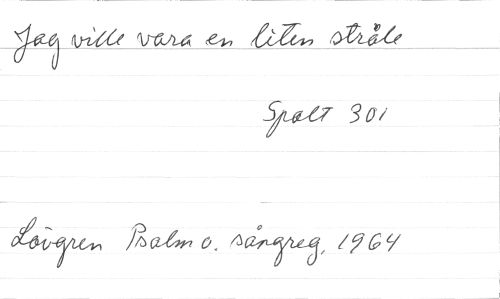 Jag ville vara en liten stråle
Spalt 301
Lövgren Psalm o. sångreg. 1964